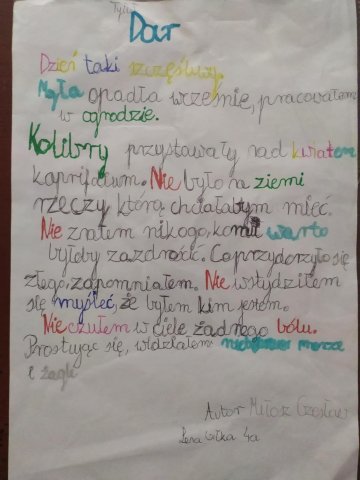 Tytuł
Dar
Dzień taki szczęśliwy.
Mgła opadła wrzesnię, pracowałem
w ogrodzie.
Kolibry przystawały nad kwiatem
kaprifolium. Nie było na ziemi
rzeczy, którą chciałabym mieć.
Nie znałem nikogo, komu warto
byłoby zazdrościć. Co przydarzyło się
złego, zapomniałem. Nie wstydziłem
się myśleć, że byłem kim jestem.
Nie czułem w ciele żadnego bólu.
Prostując się, widziałem niebieskie morze
i żagle
Autor Miłosz Czesław
Lena 4a